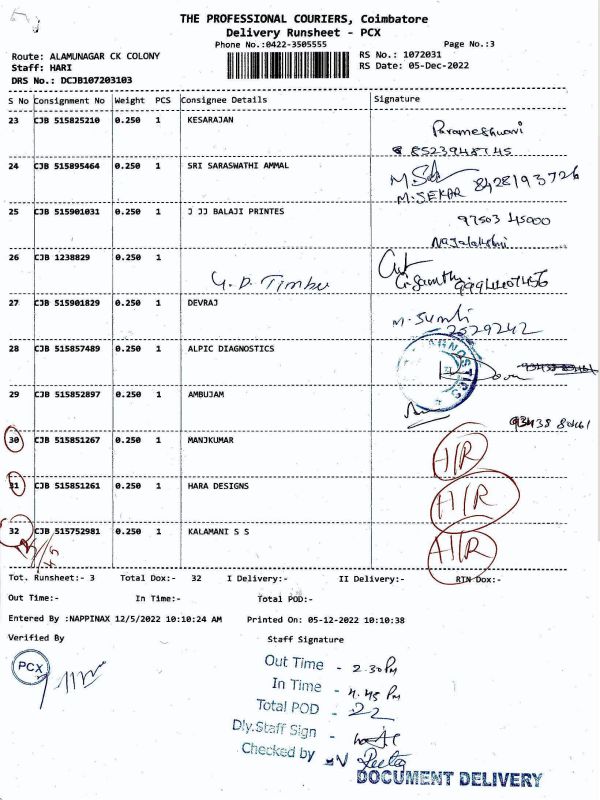 THE PROFESSIONAL COURIERS, Coimbatore
Delivery Runsheet - PCX
Phone No.:0422-3505555 Page No.:3
Route: ALAMUNAGAR CK COLONY RS No.: 1072031
Staff: HARI RS Date: 05-Dec-2022
DRS No.: DCJB107203103
S No Consignment No Weight PCS Consignee Details Signature
23 CJB 515825210 0.250 1 KESARAJAN
Parameshwari
24 CJB 515895464 0.250 1 SRI SARASWATHI AMMAL
M.SEKAR 8428193726
25 CJB 515901031 0.250 1 J JJ BALAJI PRINTES
97503 45000
26 CJB 1238829 0.250 1
27 CJB 515901829 0.250 1 DEVRAJ
2529242
28 CJB 515857489 0.250 1 ALPIC DIAGNOSTICS
29 CJB 515852897 0.250 1 AMBUJAM
30 CJB 515851267 0.250 1 MANJKUMAR H/R
31 CJB 515851261 0.250 1 HARA DESIGNS H/R
32 CJB 515752981 0.250 1 KALAMANI S S H/R
Tot. Runsheet:- 3 Total Dox:- 32 I Delivery:- II Delivery:- RTN Dox:-
Out Time:- In Time:- Total POD:-
Entered By :NAPPINAX 12/5/2022 10:10:24 AM Printed On: 05-12-2022 10:10:38
Verified By Staff Signature
PCX
Out Time - 2.30 PM
In Time - 4.45 PM
Total POD - 22
Dly.Staff Sign -
Checked by
DOCUMENT DELIVERY